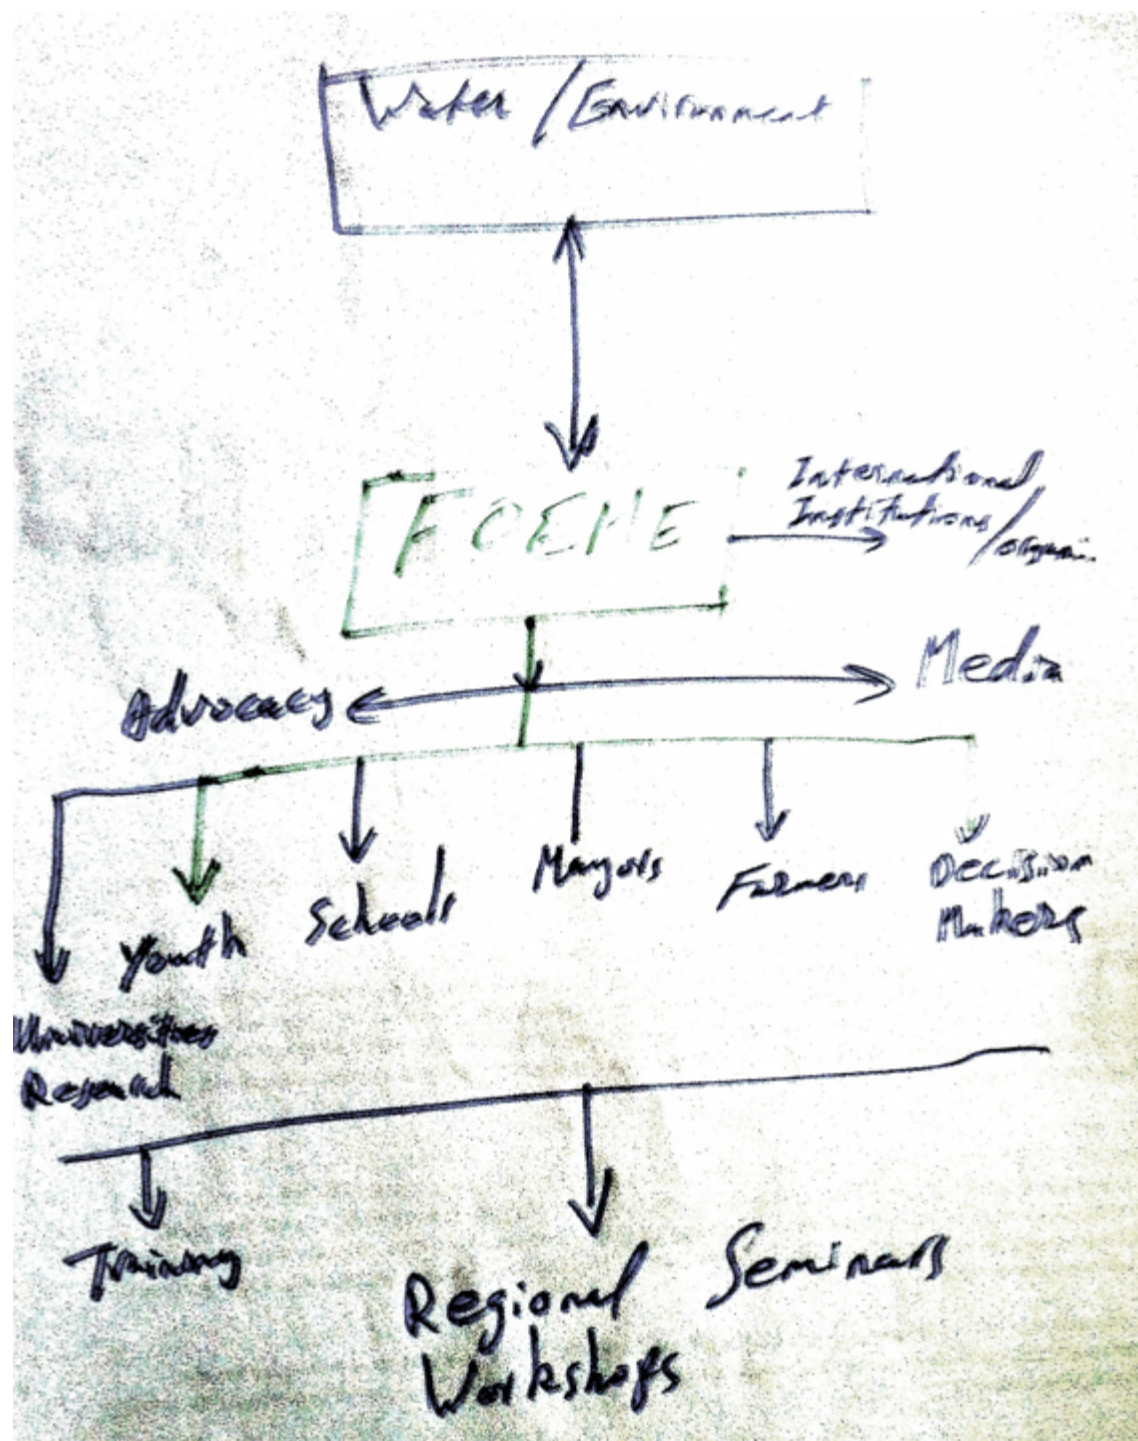 Water / Environment
FOEME
International
Institutions / organi.
Advocacy
Media
Universities
Research
Youth
Schools
Mayors
Farmers
Decission
Makers
Training
Regional
Workshops
Seminars